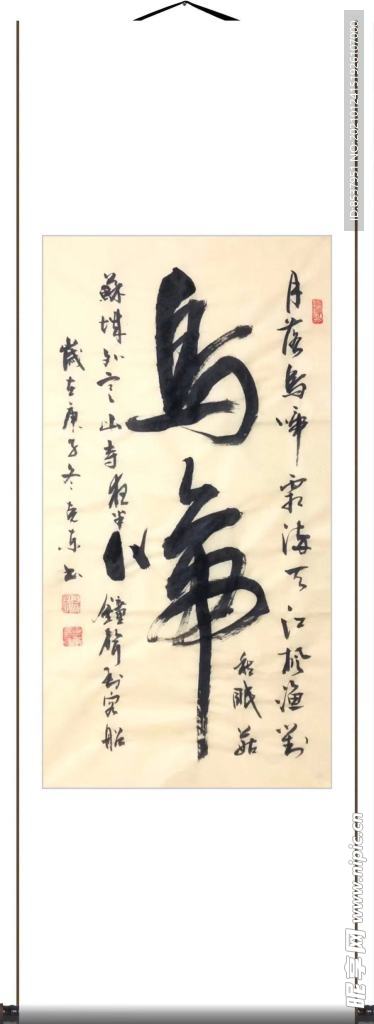 月落烏啼霜满天江楓漁對
愁眠姑
烏啼
蘇城外寒山寺夜半鐘聲到客船
歲在庚子冬克东书
ID:8537951 NO:20210124151926107000
昵享网 www.nipic.cn